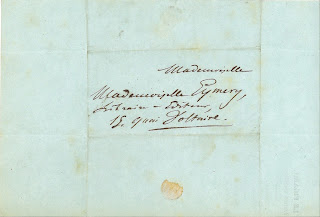 Mademoiselle
Mademoiselle Eymery,
Libraire-Editeur,
15, quai Voltaire.